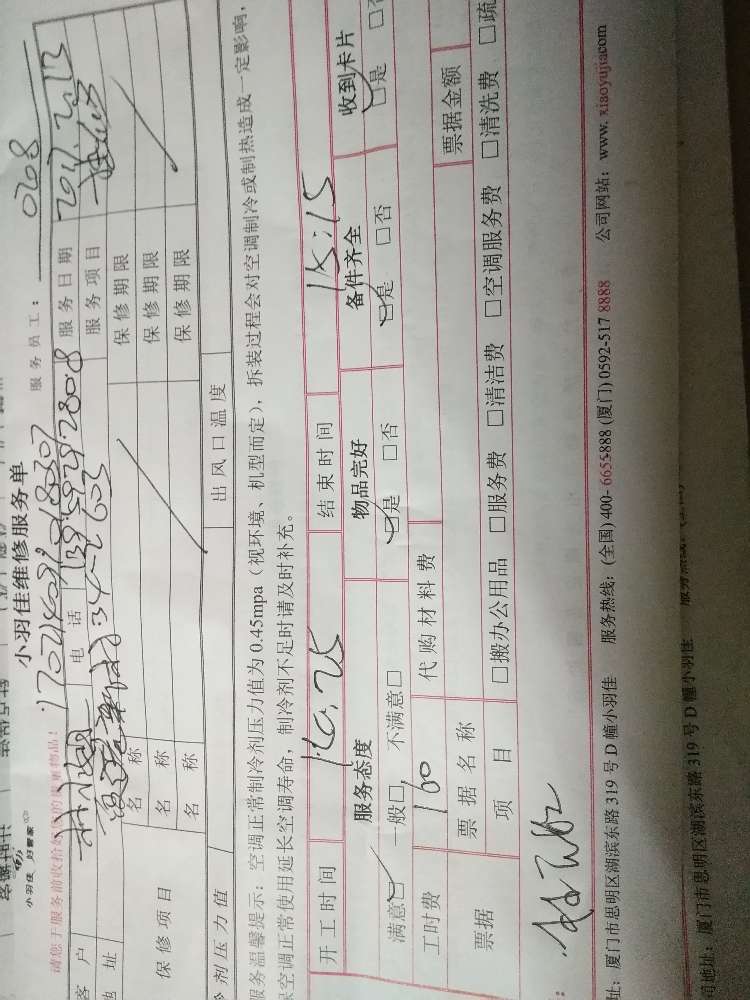 小羽佳 好管家
小羽佳维修服务单
服务员工：0268
请您于服务前收拾好
客户 电话 服务日期 2017.2.13
地址 34-2603 服务项目
保修项目 名称 保修期限
名称 保修期限
名称 保修期限
剂压力值 出风口温度
服务温馨提示：空调正常制冷剂压力值为 0.45mpa（视环境、机型而定），拆装过程会对空调制冷或制热造成一定影响，
保空调正常使用延长空调寿命，制冷剂不足时请及时补充。
开工时间 14:25 结束时间 15:15
服务态度 物品完好 备件齐全 收到卡片
满意□ 一般□ 不满意□ □是 □否 □是 □否 □是 □否
工时费 160 代购材料费
票据 票据名称 票据金额
项目 □搬办公用品 □服务费 □清洁费 □空调服务费 □清洗费 □疏
址：厦门市思明区湖滨东路 319 号 D 幢小羽佳 服务热线：(全国) 400-6655-888 (厦门) 0592-517 8888 公司网站：www.xiaoyujia.com
司地址：厦门市思明区湖滨东路 319 号 D 幢小羽佳